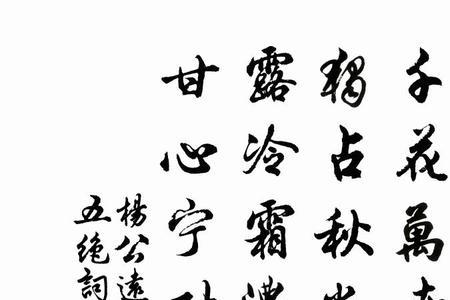 千花萬
獨占秋
露冷霜
甘心宁
楊公遠
五絕詞